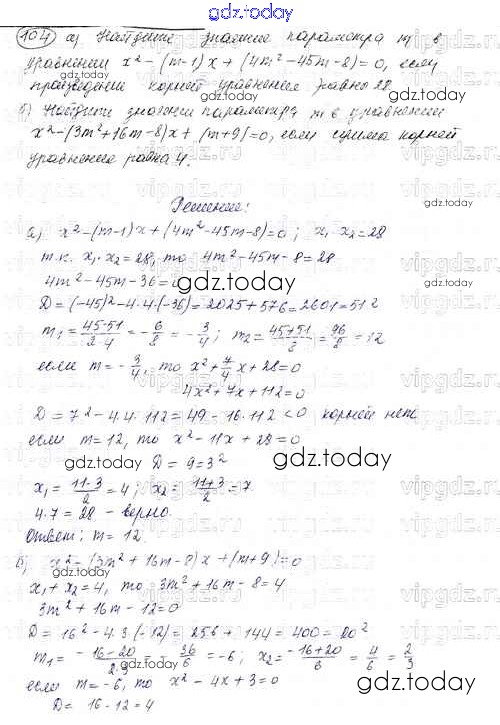 gdz.today
104 а) Найдите значение параметра m в
уравнении x² - (m-1)x + (4m² - 45m - 8) = 0, если
произведение корней уравнения равно 28.
б) Найти значения параметра m в уравнении
x² - (3m² + 16m - 8)x + (m+9) = 0, если сумма корней
уравнения равна 4.
Решение:
а) x² - (m-1)x + (4m² - 45m - 8) = 0; x₁·x₂ = 28
т.к. x₁·x₂ = 28, то 4m² - 45m - 8 = 28
4m² - 45m - 36 = 0
gdz.today
D = (-45)² - 4·4·(-36) = 2025 + 576 = 2601 = 51²
m₁ = (45-51)/(2·4) = -6/8 = -3/4; m₂ = (45+51)/8 = 96/8 = 12
если m = -3/4, то x² + 7/4 x + 28 = 0
4x² + 7x + 112 = 0
D = 7² - 4·4·112 = 49 - 16·112 < 0 корней нет
если m = 12, то x² - 11x + 28 = 0
gdz.today
D = 9 = 3²
gdz.today
x₁ = (11-3)/2 = 4; x₂ = (11+3)/2 = 7
4·7 = 28 - верно.
Ответ: m = 12.
gdz.today
б) x² - (3m² + 16m - 8)x + (m+9) = 0
gdz.today
x₁ + x₂ = 4, то 3m² + 16m - 8 = 4
3m² + 16m - 12 = 0
D = 16² - 4·3·(-12) = 256 + 144 = 400 = 20²
m₁ = (-16-20)/(2·3) = -36/6 = -6; x₂ = (-16+20)/6 = 4/6 = 2/3
gdz.today
если m = -6, то x² - 4x + 3 = 0
D = 16 - 12 = 4
gdz.today